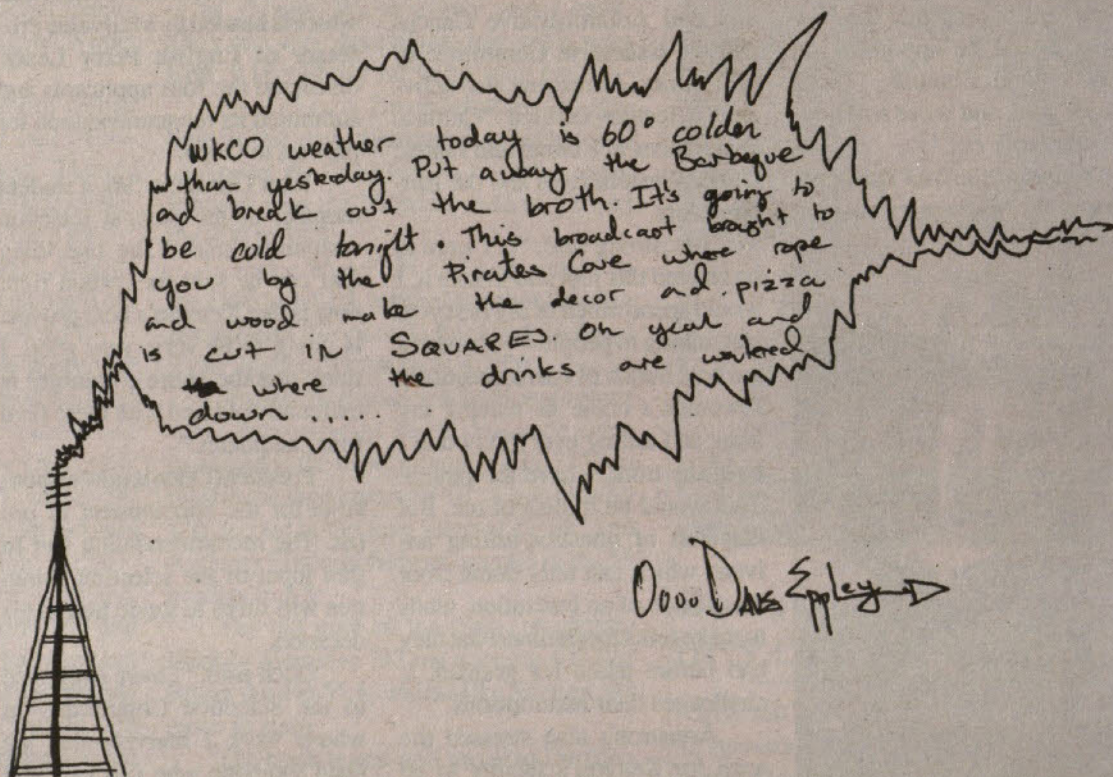 WKCO weather today is 60° colder
than yesterday. Put away the Barbeque
and break out the broth. It's going to
be cold tonight. This broadcast brought to
you by the Pirates Cove where rope
and wood make the decor and pizza
is cut in SQUARES. Oh yeah and
where the drinks are watered
down ....
Eppley